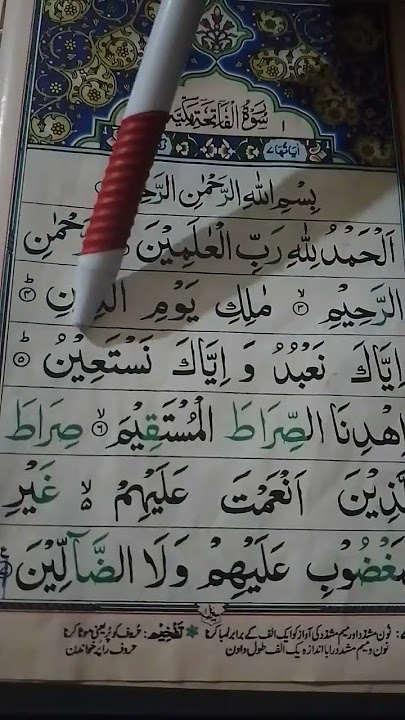 سُوْرَةُ الْفَاتِحَةِ مَكِّيَّةٌ ١
اٰيَاتُهَا ٧
بِسْمِ اللّٰهِ الرَّحْمٰنِ
اَلْحَمْدُ لِلّٰهِ رَبِّ الْعٰلَمِيْنَ
الرَّحِيْمِ ۙ﴿۳﴾ مٰلِكِ يَوْمِ ﴿۴﴾ؕ
اِيَّاكَ نَعْبُدُ وَ اِيَّاكَ نَسْتَعِيْنُ ﴿۵﴾ؕ
اِهْدِنَا الصِّرَاطَ الْمُسْتَقِيْمَ ۙ﴿۶﴾ صِرَاطَ
الَّذِيْنَ اَنْعَمْتَ عَلَيْهِمْ ۙ۵ غَيْرِ
الْمَغْضُوْبِ عَلَيْهِمْ وَلَا الضَّآلِّيْنَ
نون مشدد اور میم مشدد کی آواز کو ایک الف کے برابر لمبا کرنا ✱ تفخیم: حروف کو پُر یعنی موٹا کرنا
نون و میم مشدد را با اندازہ یک الف طول دادن حروف را پر خواندن